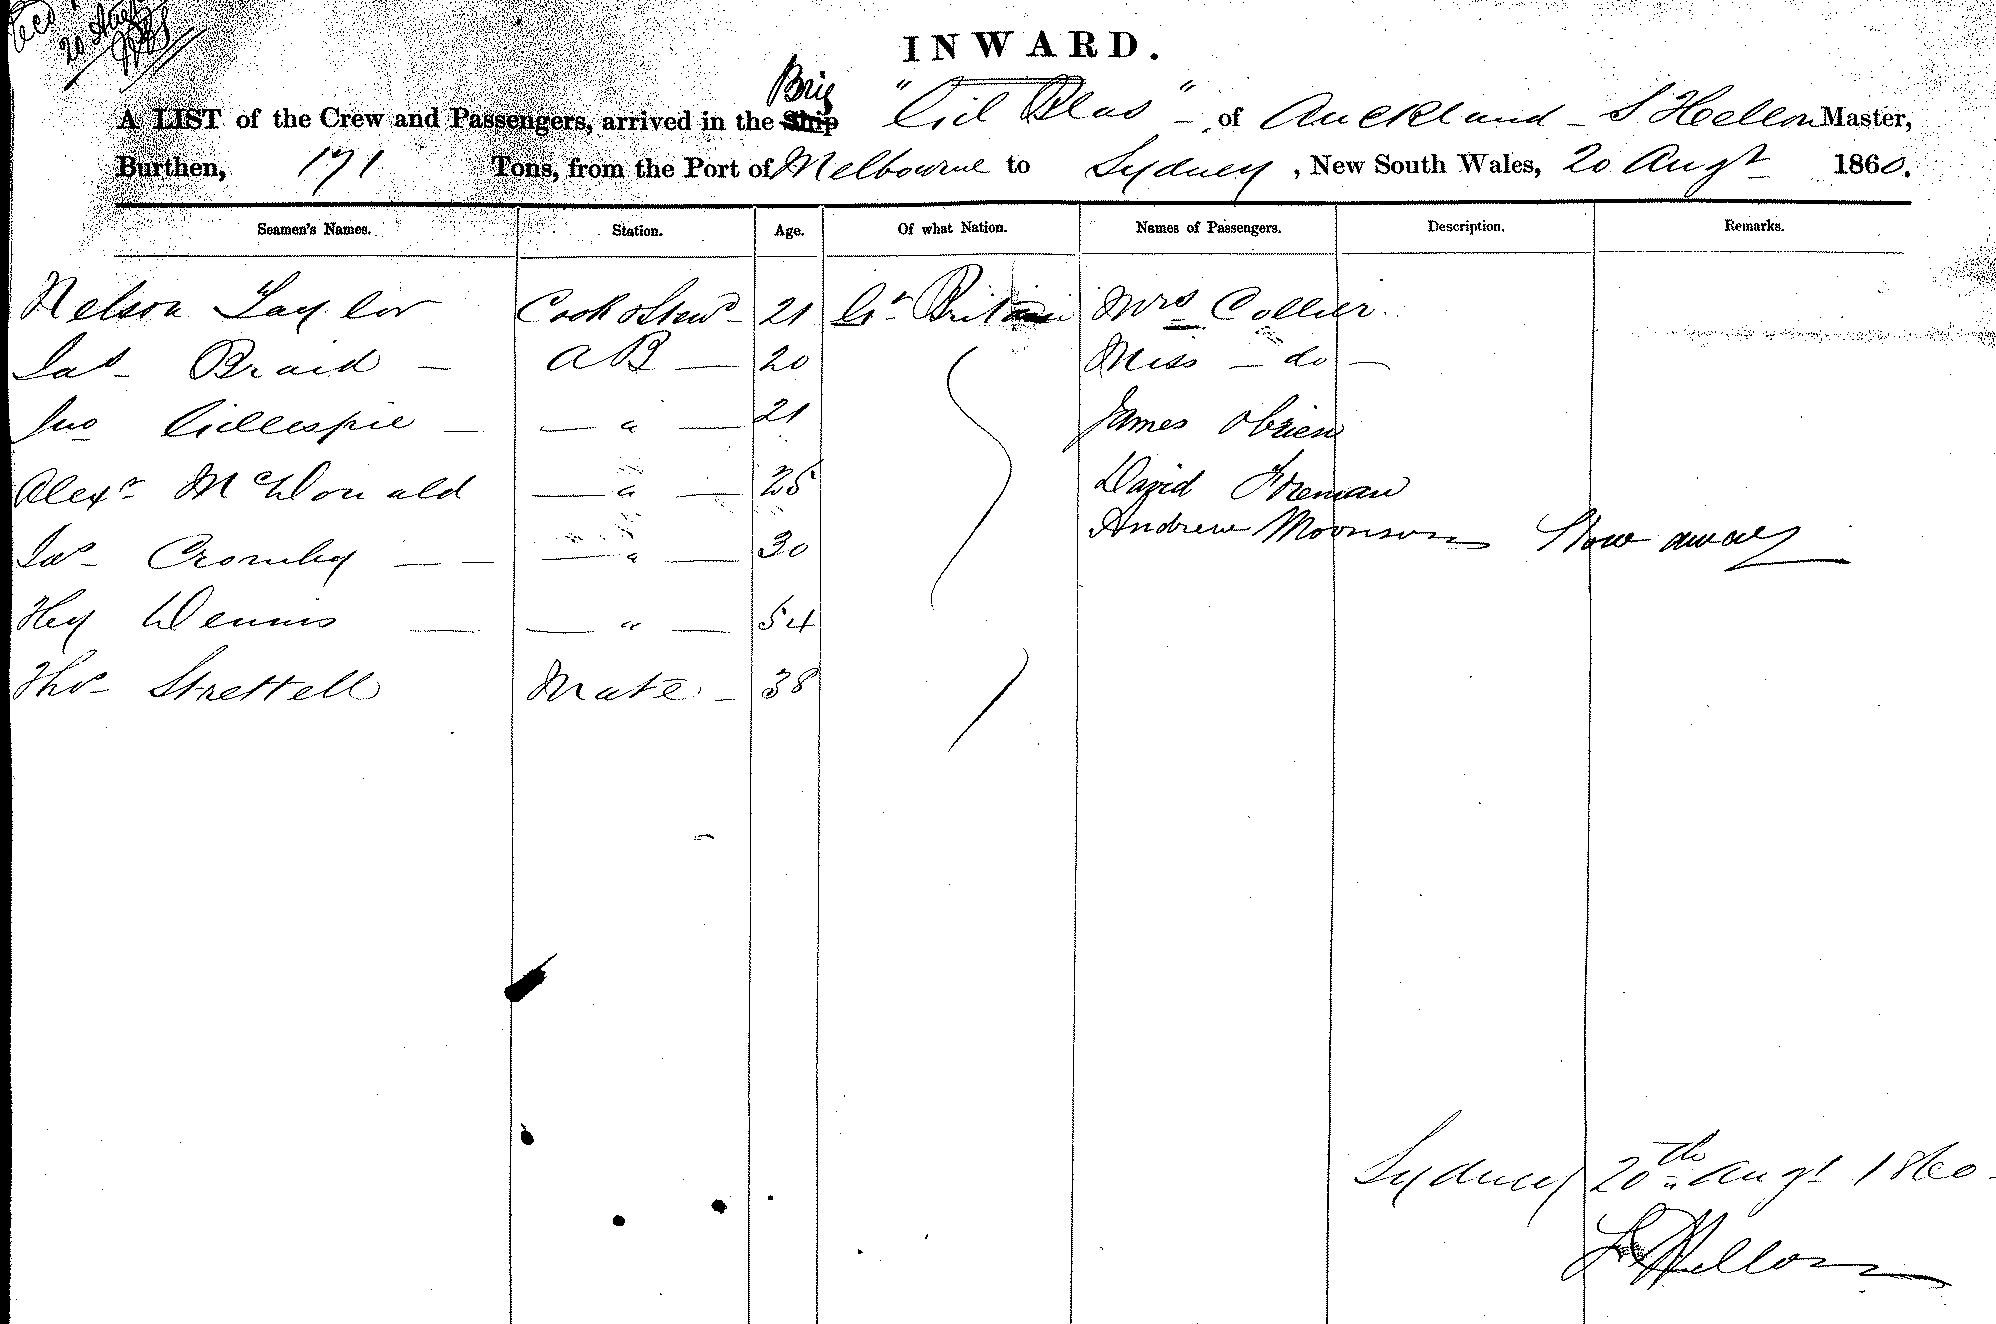 20 Aug
INWARD.
Brig
A LIST of the Crew and Passengers, arrived in the Ship "Gil Blas" - of Auckland - S Hellon Master,
Burthen, 171 Tons, from the Port of Melbourne to Sydney, New South Wales, 20 Augt 1860.
Seamen's Names. Station. Age. Of what Nation. Names of Passengers. Description. Remarks.
Nelson Taylor Cook & Stewd 21 Gt Britain Mrs Collier
Jas Braid — AB — 20 Miss — do —
Jno Gillespie — — " — 21 James Obrien
Alexr McDonald — " — 25 David Foreman
Jas Cromby — — — " — 30 Andrew Stow away
Hy Dennis — — " — 54
Thos Strettell Mate - 38
Sydney 20th Augt 1860 -
S Hellon